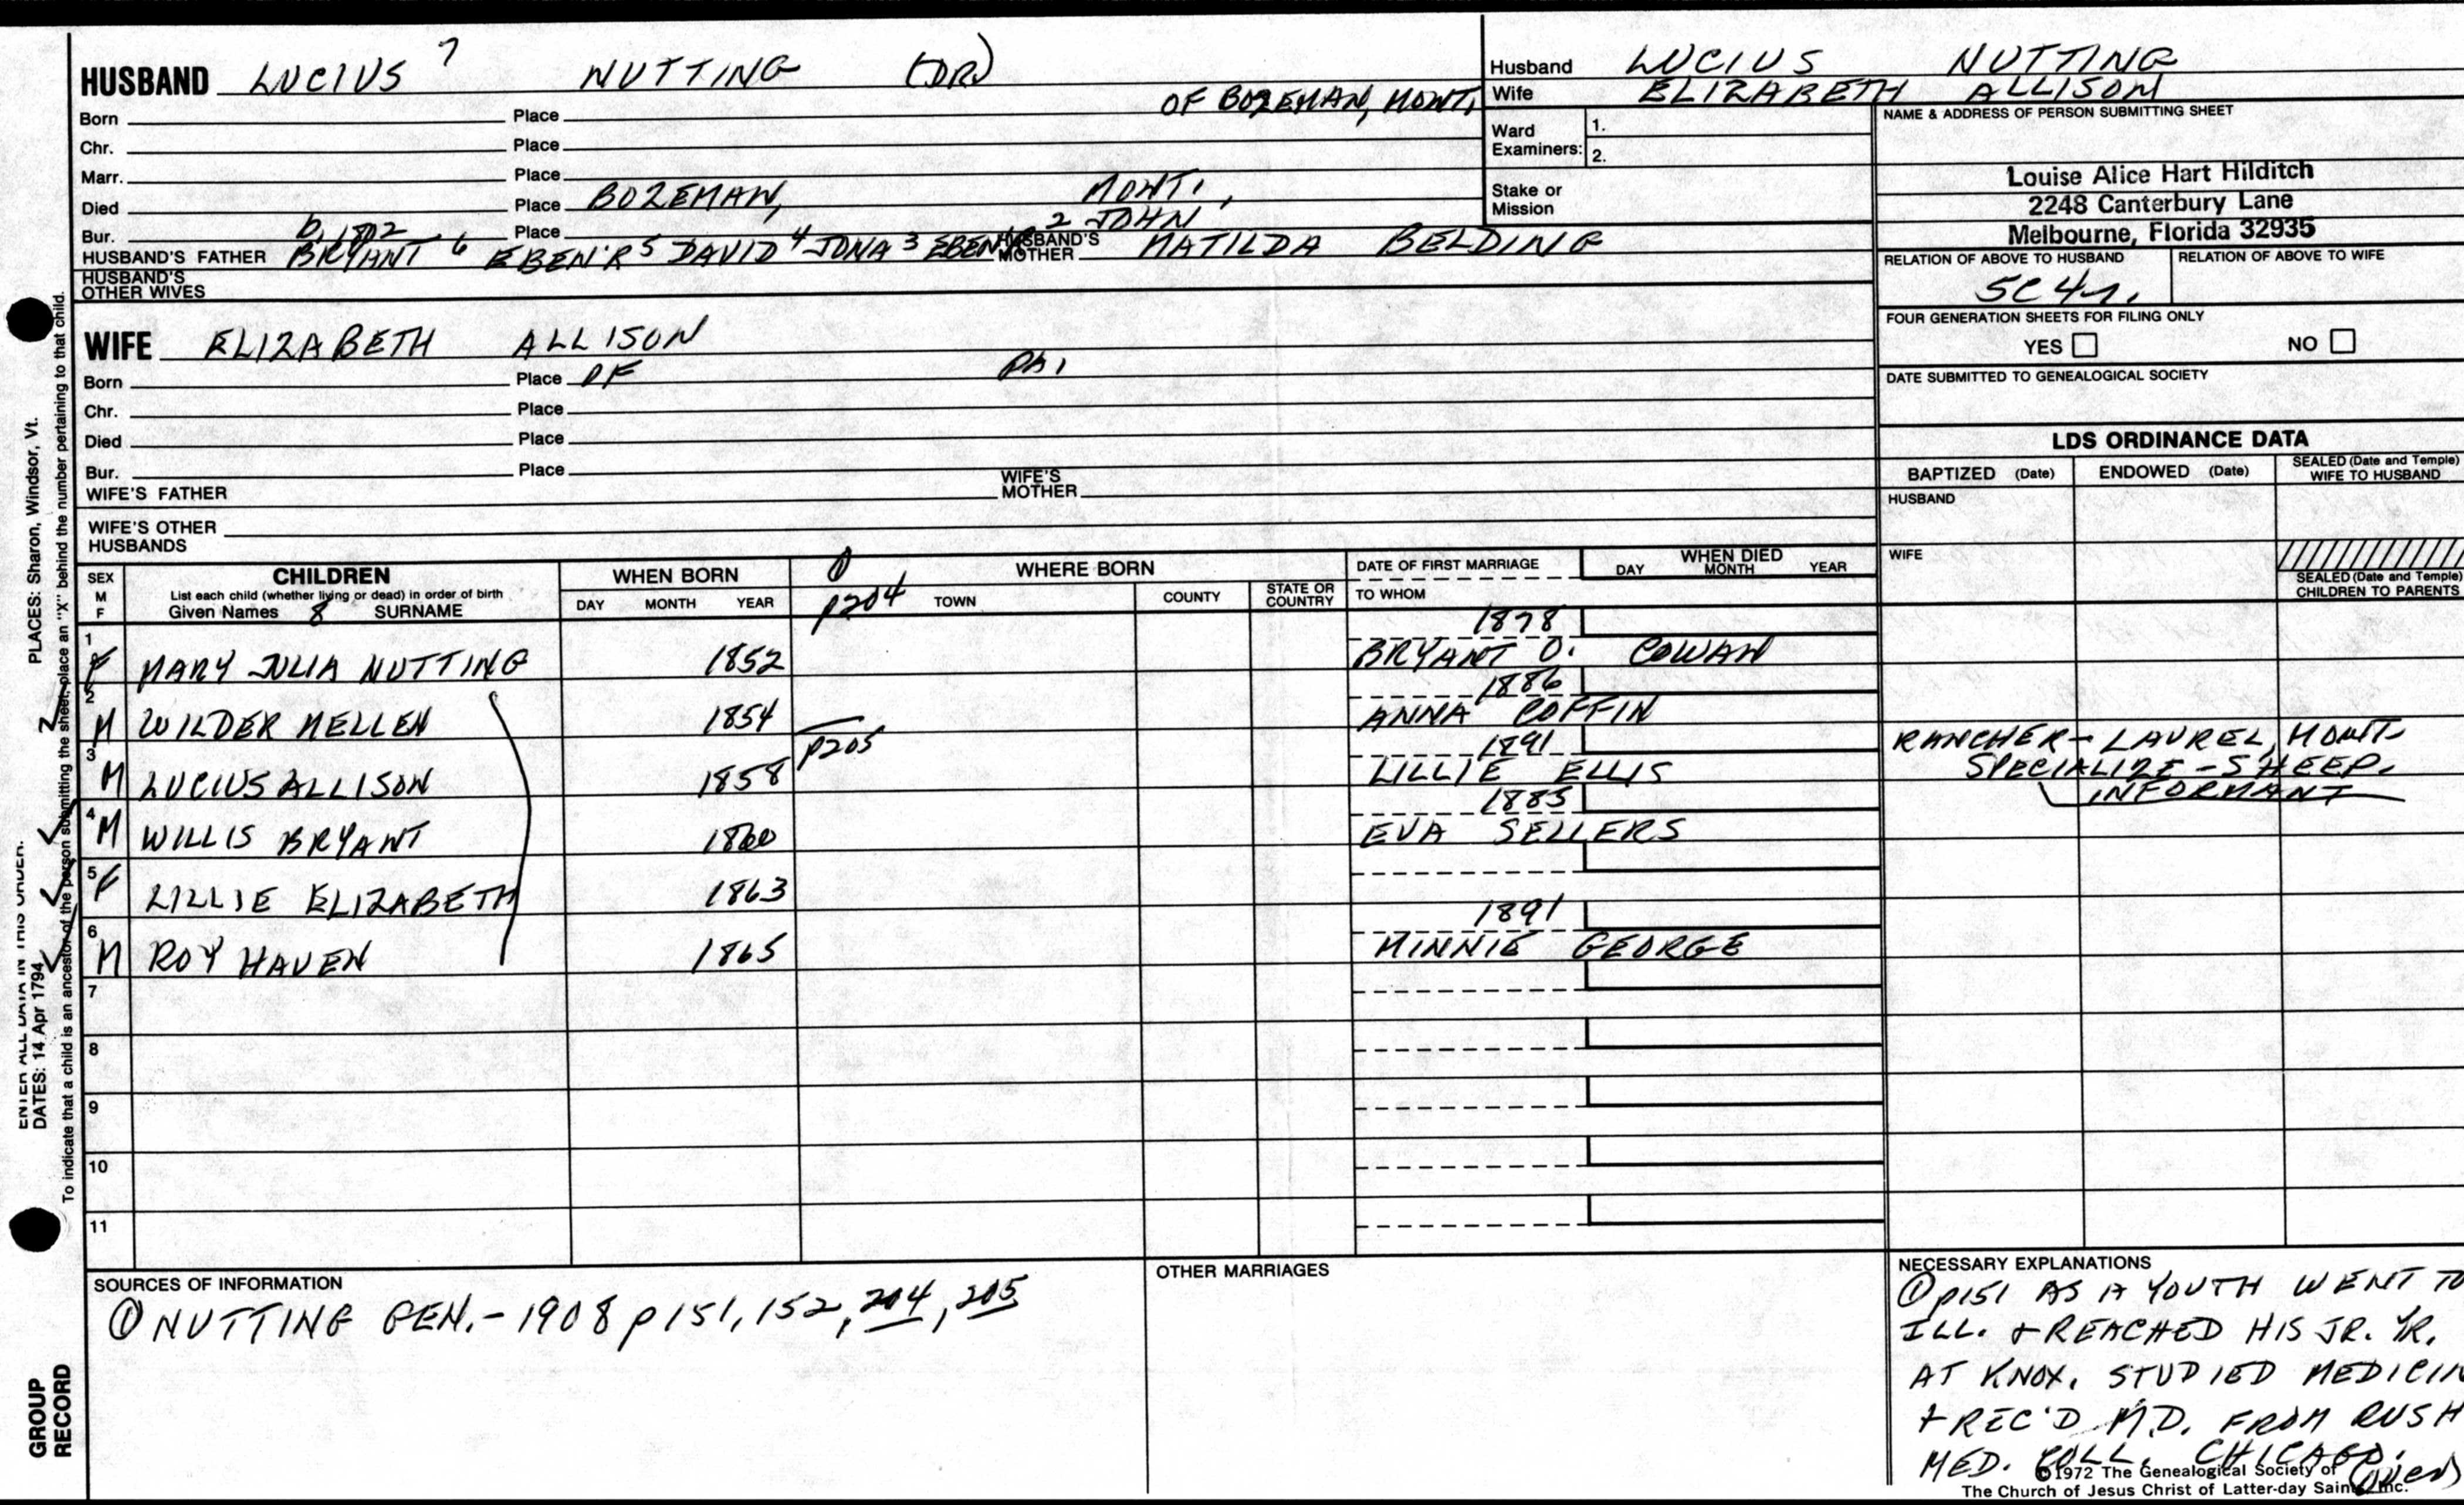 HUSBAND LUCIUS 7 NUTTING (DR)
OF BOZEMAN, MONT,
Born Place
Chr. Place
Marr. Place
Died Place BOZEMAN, MONT,
Bur. b. 1802 Place 2 JOHN
HUSBAND'S FATHER BRYANT 6 EBEN'R 5 DAVID 4 JONA 3 EBEN'R HUSBAND'S MOTHER MATILDA BELDING
HUSBAND'S OTHER WIVES
WIFE ELIZABETH ALLISON
Born Place OF PA,
Chr. Place
Died Place
Bur. Place
WIFE'S FATHER WIFE'S MOTHER
WIFE'S OTHER HUSBANDS
Husband LUCIUS NUTTING
Wife ELIZABETH ALLISON
Ward Examiners: 1.
2.
Stake or Mission
NAME & ADDRESS OF PERSON SUBMITTING SHEET
Louise Alice Hart Hilditch
2248 Canterbury Lane
Melbourne, Florida 32935
RELATION OF ABOVE TO HUSBAND RELATION OF ABOVE TO WIFE
5C4r.
FOUR GENERATION SHEETS FOR FILING ONLY
YES NO
DATE SUBMITTED TO GENEALOGICAL SOCIETY
LDS ORDINANCE DATA
BAPTIZED (Date) ENDOWED (Date) SEALED (Date and Temple) WIFE TO HUSBAND
HUSBAND
WIFE
SEALED (Date and Temple) CHILDREN TO PARENTS
SEX M F
CHILDREN
List each child (whether living or dead) in order of birth
Given Names 8 SURNAME
WHEN BORN
DAY MONTH YEAR
WHERE BORN
p204 TOWN COUNTY STATE OR COUNTRY
DATE OF FIRST MARRIAGE
TO WHOM
WHEN DIED
DAY MONTH YEAR
1878
1 F MARY JULIA NUTTING 1852 BRYANT O. COWAN
1886
2 M WILDER MELLEN 1854 ANNA COFFIN
p205 1891
3 M LUCIUS ALLISON 1858 LILLIE ELLIS
RANCHER - LAUREL, MONT.
SPECIALIZE - SHEEP.
INFORMANT
1885
4 M WILLIS BRYANT 1860 EVA SELLERS
5 F LILLIE ELIZABETH 1863
1891
6 M ROY HAVEN 1865 MINNIE GEORGE
7
8
9
10
11
SOURCES OF INFORMATION
① NUTTING GEN. - 1908 p 151, 152, 204, 205
OTHER MARRIAGES
NECESSARY EXPLANATIONS
① p151 AS A YOUTH WENT TO
ILL. + REACHED HIS JR. YR.
AT KNOX. STUDIED MEDICIN
+ REC'D M.D. FROM RUSH
MED. COLL. CHICAGO.
(over)
©1972 The Genealogical Society of
The Church of Jesus Christ of Latter-day Saints, Inc.
PLACES: Sharon, Windsor, Vt.
To indicate that a child is an ancestor of the person submitting the sheet, place an "X" behind the number pertaining to that child.
ENTER ALL DATA IN THIS ORDER:
DATES: 14 Apr 1794
GROUP
RECORD